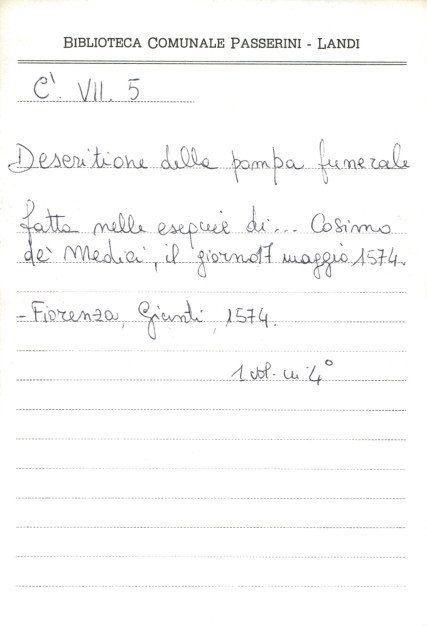 BIBLIOTECA COMUNALE PASSERINI - LANDI
C'. VII. 5
Descritione della pompa funerale
fatta nelle esequie di... Cosimo
de' Medici, il giorno 17 maggio 1574.
- Fiorenza, Giunti, 1574.
1 vol. in 4°